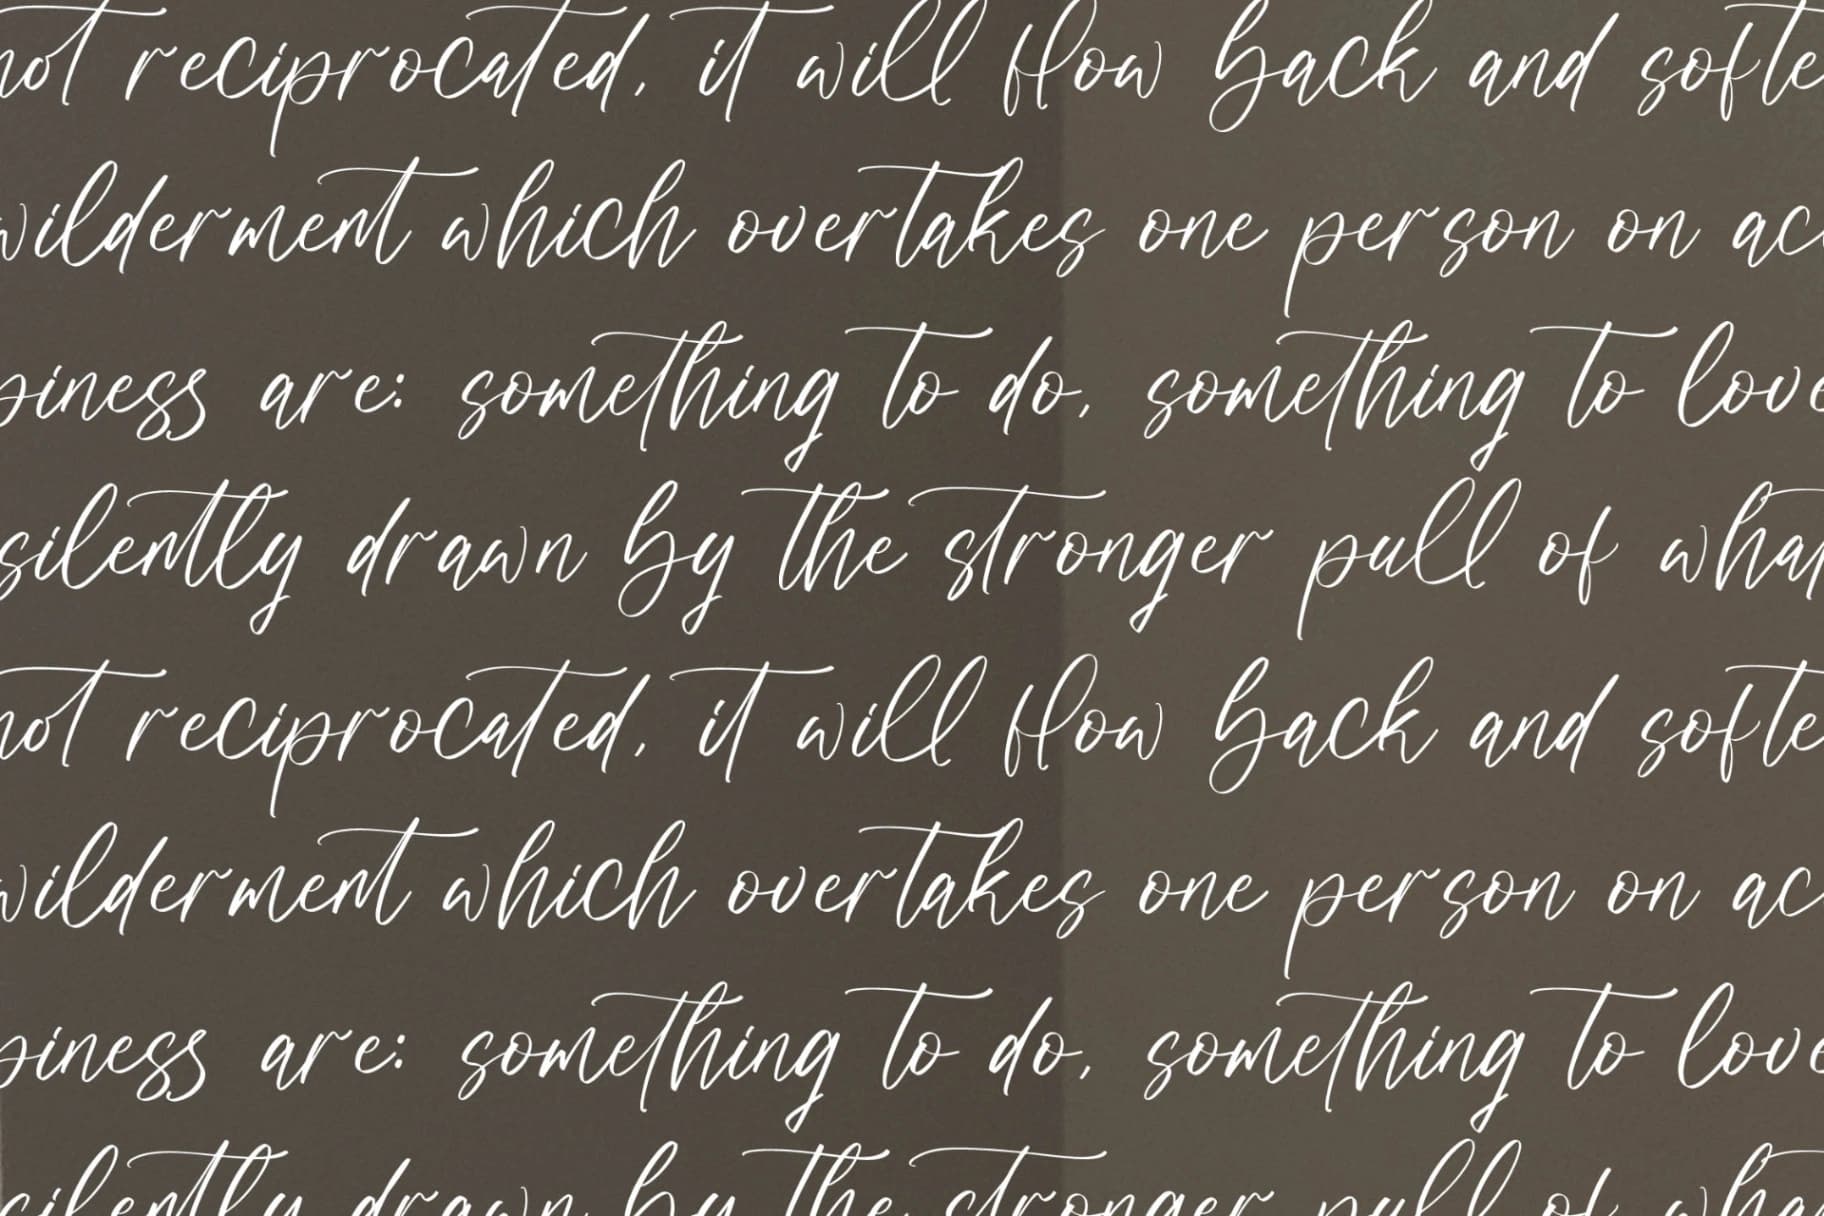 not reciprocated, it will flow back and softe
wilderment which overtakes one person on acc
piness are: something to do, something to love
silently drawn by the stronger pull of what
not reciprocated, it will flow back and softe
wilderment which overtakes one person on ac
piness are: something to do, something to love
silently drawn by the stronger pull of what